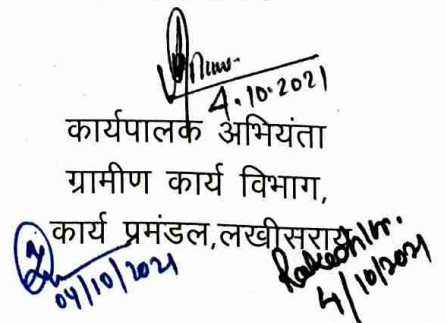 4.10.2021
कार्यपालक अभियंता
ग्रामीण कार्य विभाग,
कार्य प्रमंडल,लखीसराय
04/10/2021
Rakesh Kr.
4/10/2021